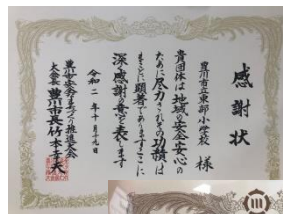 感謝状
豊川市立東部小学校 様
貴団体は地域の安全安心の
ために尽力されその功績は
まことに顕著でありますここに
深く感謝の意を表します
令和二年十月十九日
豊川市安全なまちづくり推進大会
大会長 豊川市長 竹本幸夫